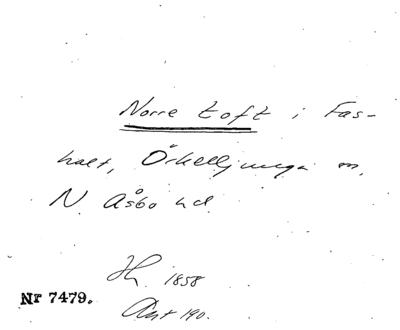 Norre toft i Fas-
halt, Örkelljunga sn,
N. Åsbo hd.
Hy. 1858
Ant 190.
Nr 7479.